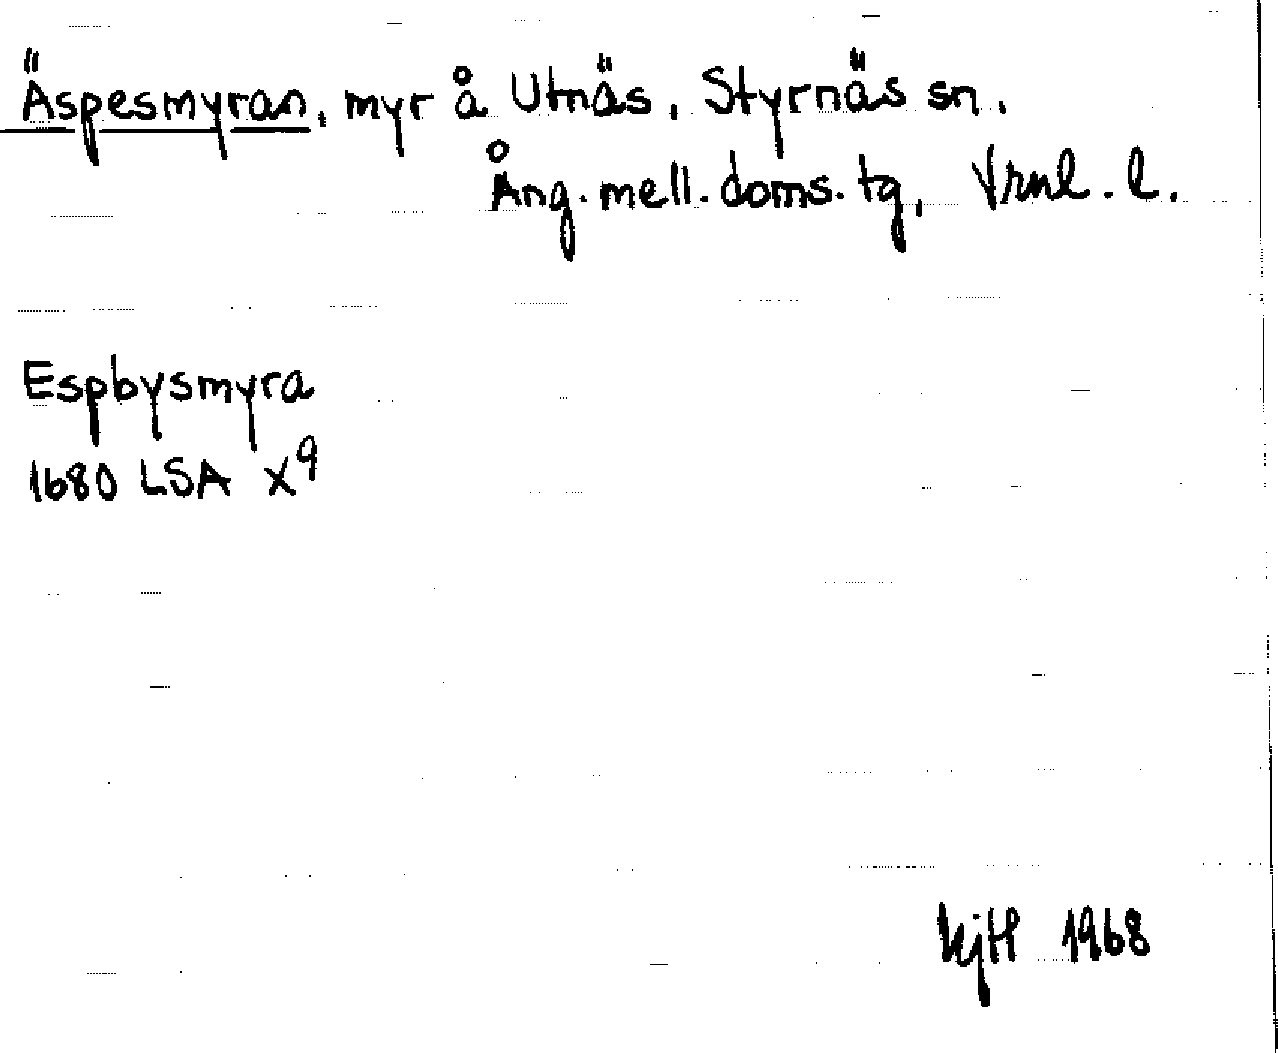 Äspesmyran, myr å Utnäs, Styrnäs sn.
Ång. mell. doms. tg, Vrnl. l.
Espbysmyra
1680 LSA X⁹
kjH 1968